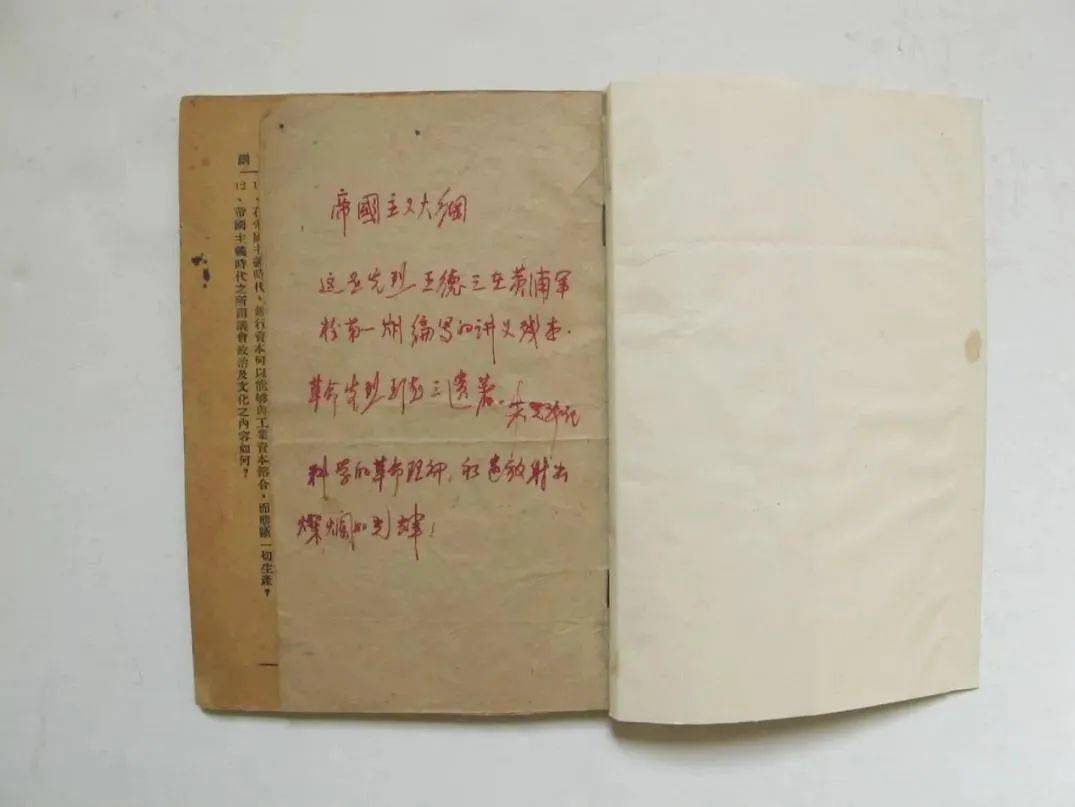 帝國主义大綱
这是先烈王德三在黄浦军
校第一期编写的讲义残本.
革命先烈王德三遗著。
科学的革命理论,永远放射出
燦爛的光辉!
在帝國主義時代,銀行資本何以能够與工業資本鎔合,而壟斷一切生產?
12、帝國主義時代之所謂議會政治及文化之內容如何?